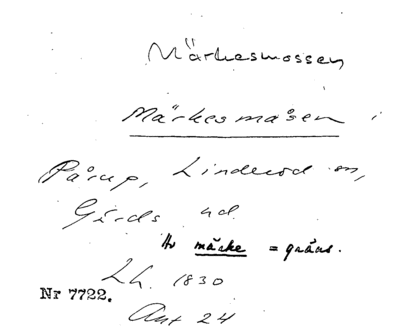 Märkesmossen
Märkesmåsen i
Pårup, Linderöd sn,
Gärds hd.
Av märke = gräns.
Lh. 1830
Nr 7722.
Akt 24